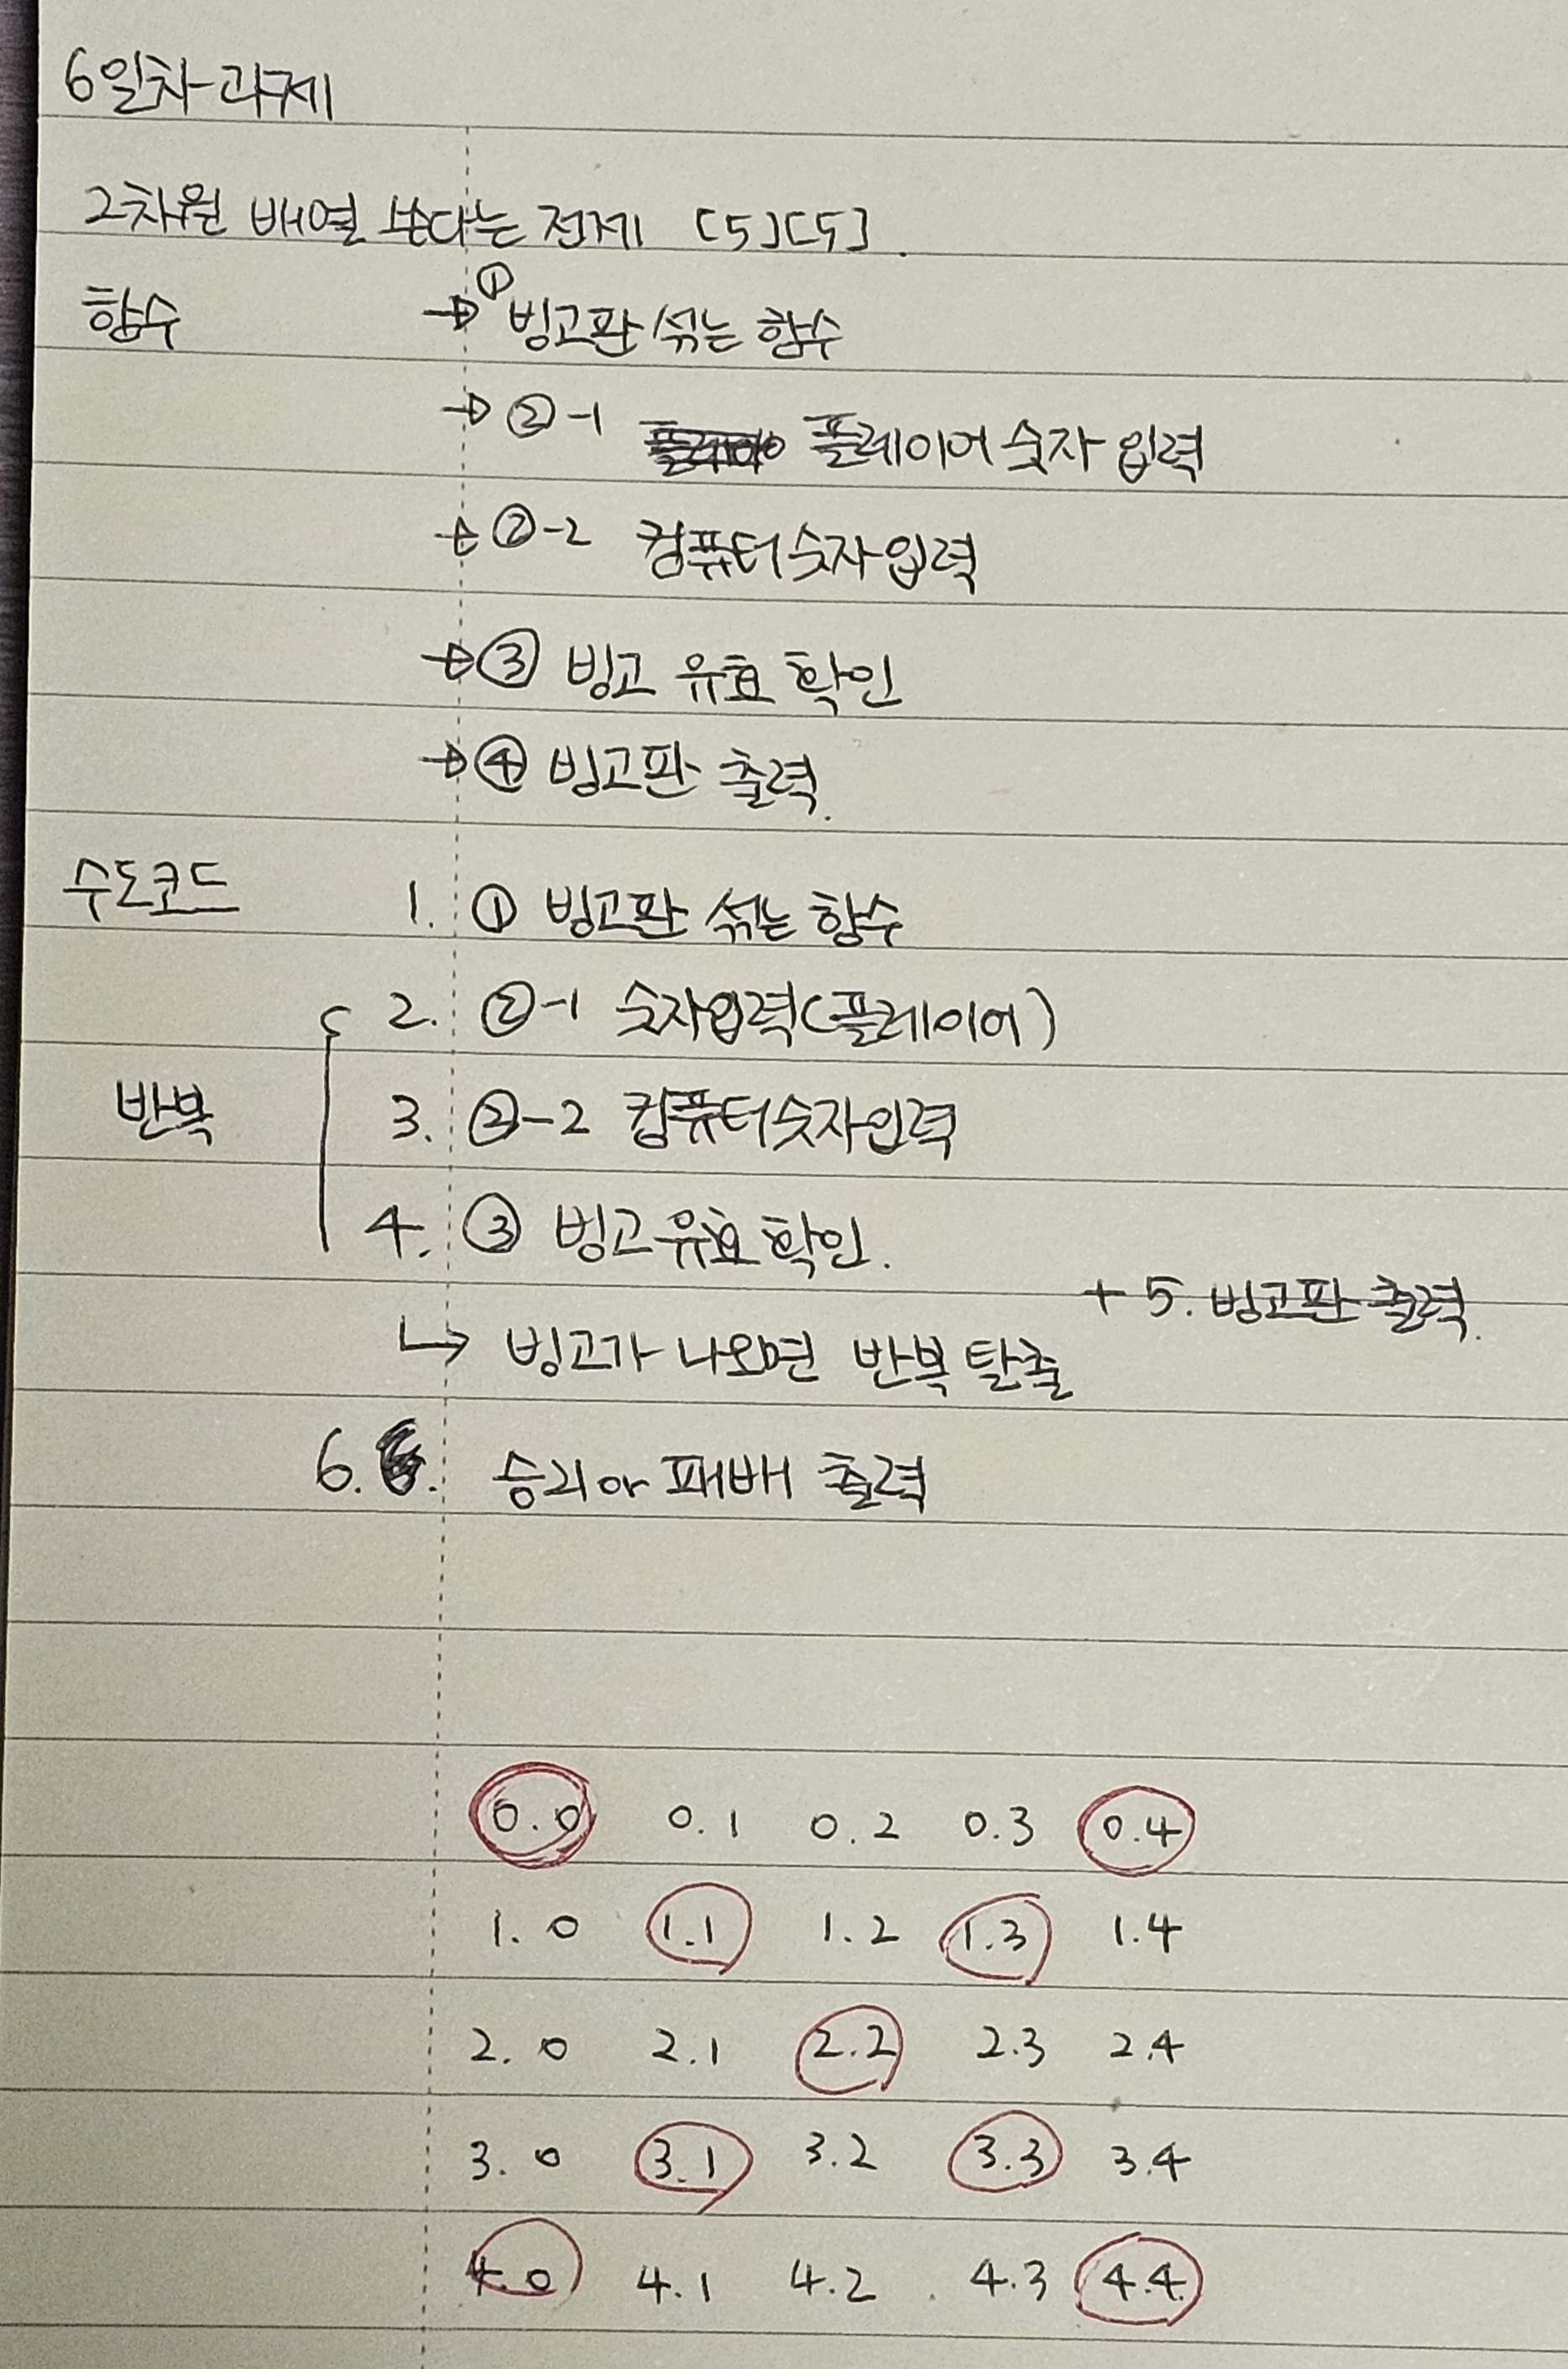 6일차 과제
2차원 배열 쓴다는 전제 [5][5].
함수 → ① 빙고판 섞는 함수
→ ②-1 플레이어 숫자 입력
→ ②-2 컴퓨터 숫자 입력
→ ③ 빙고 유효 확인
→ ④ 빙고판 출력.
수도코드 1. ① 빙고판 섞는 함수
2. ②-1 숫자입력(플레이어)
반복 3. ②-2 컴퓨터 숫자입력
4. ③ 빙고 유효 확인.
+ 5. 빙고판 출력.
↳ 빙고가 나오면 반복 탈출
6. 승리 or 패배 출력
0.0 0.1 0.2 0.3 0.4
1.0 1.1 1.2 1.3 1.4
2.0 2.1 2.2 2.3 2.4
3.0 3.1 3.2 3.3 3.4
4.0 4.1 4.2 4.3 4.4